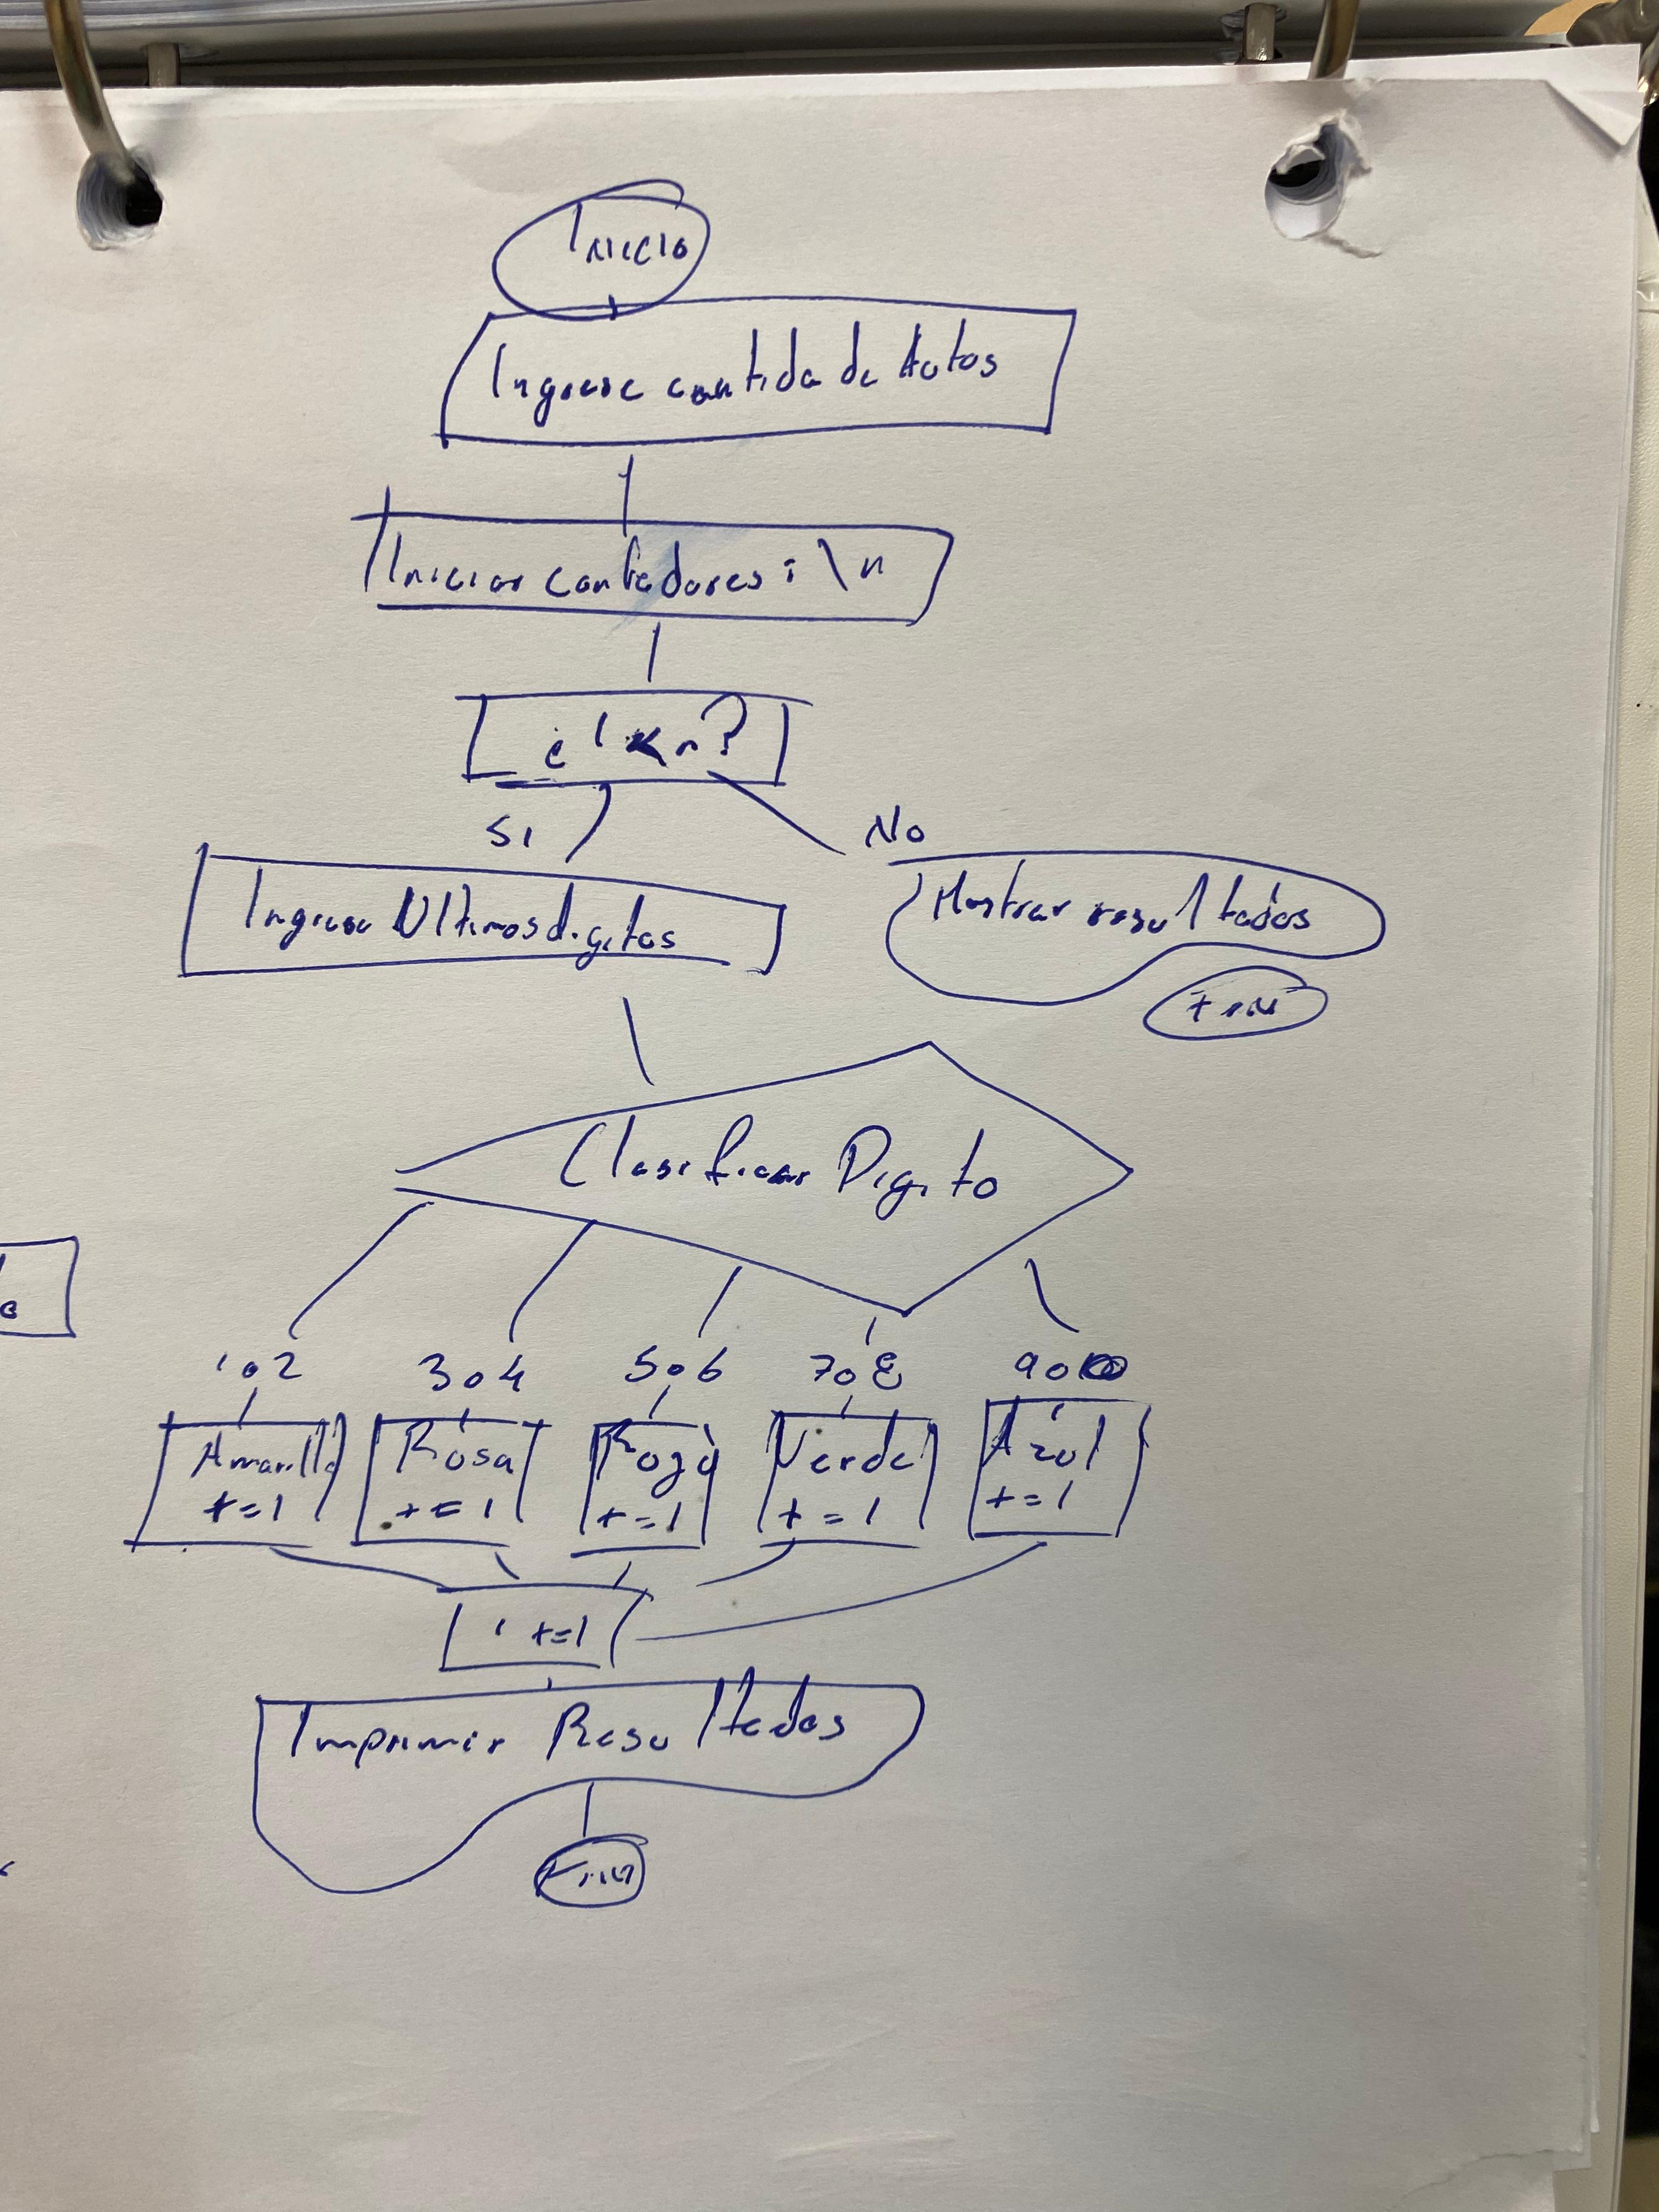 Inicio
Ingrese cantida de Autos
Iniciar contadores i \n
¿ i < n?
Si
No
Ingrese Ultimos digitos
Mostrar resultados
Fin
Clasificar Digito
1 o 2
3 o 4
5 o 6
7 o 8
9 o
Amarillo
+=1
Rosa
+=1
Rojo
+=1
Verde
+=1
Azul
+=1
i +=1
Imprimir Resultados
Fin